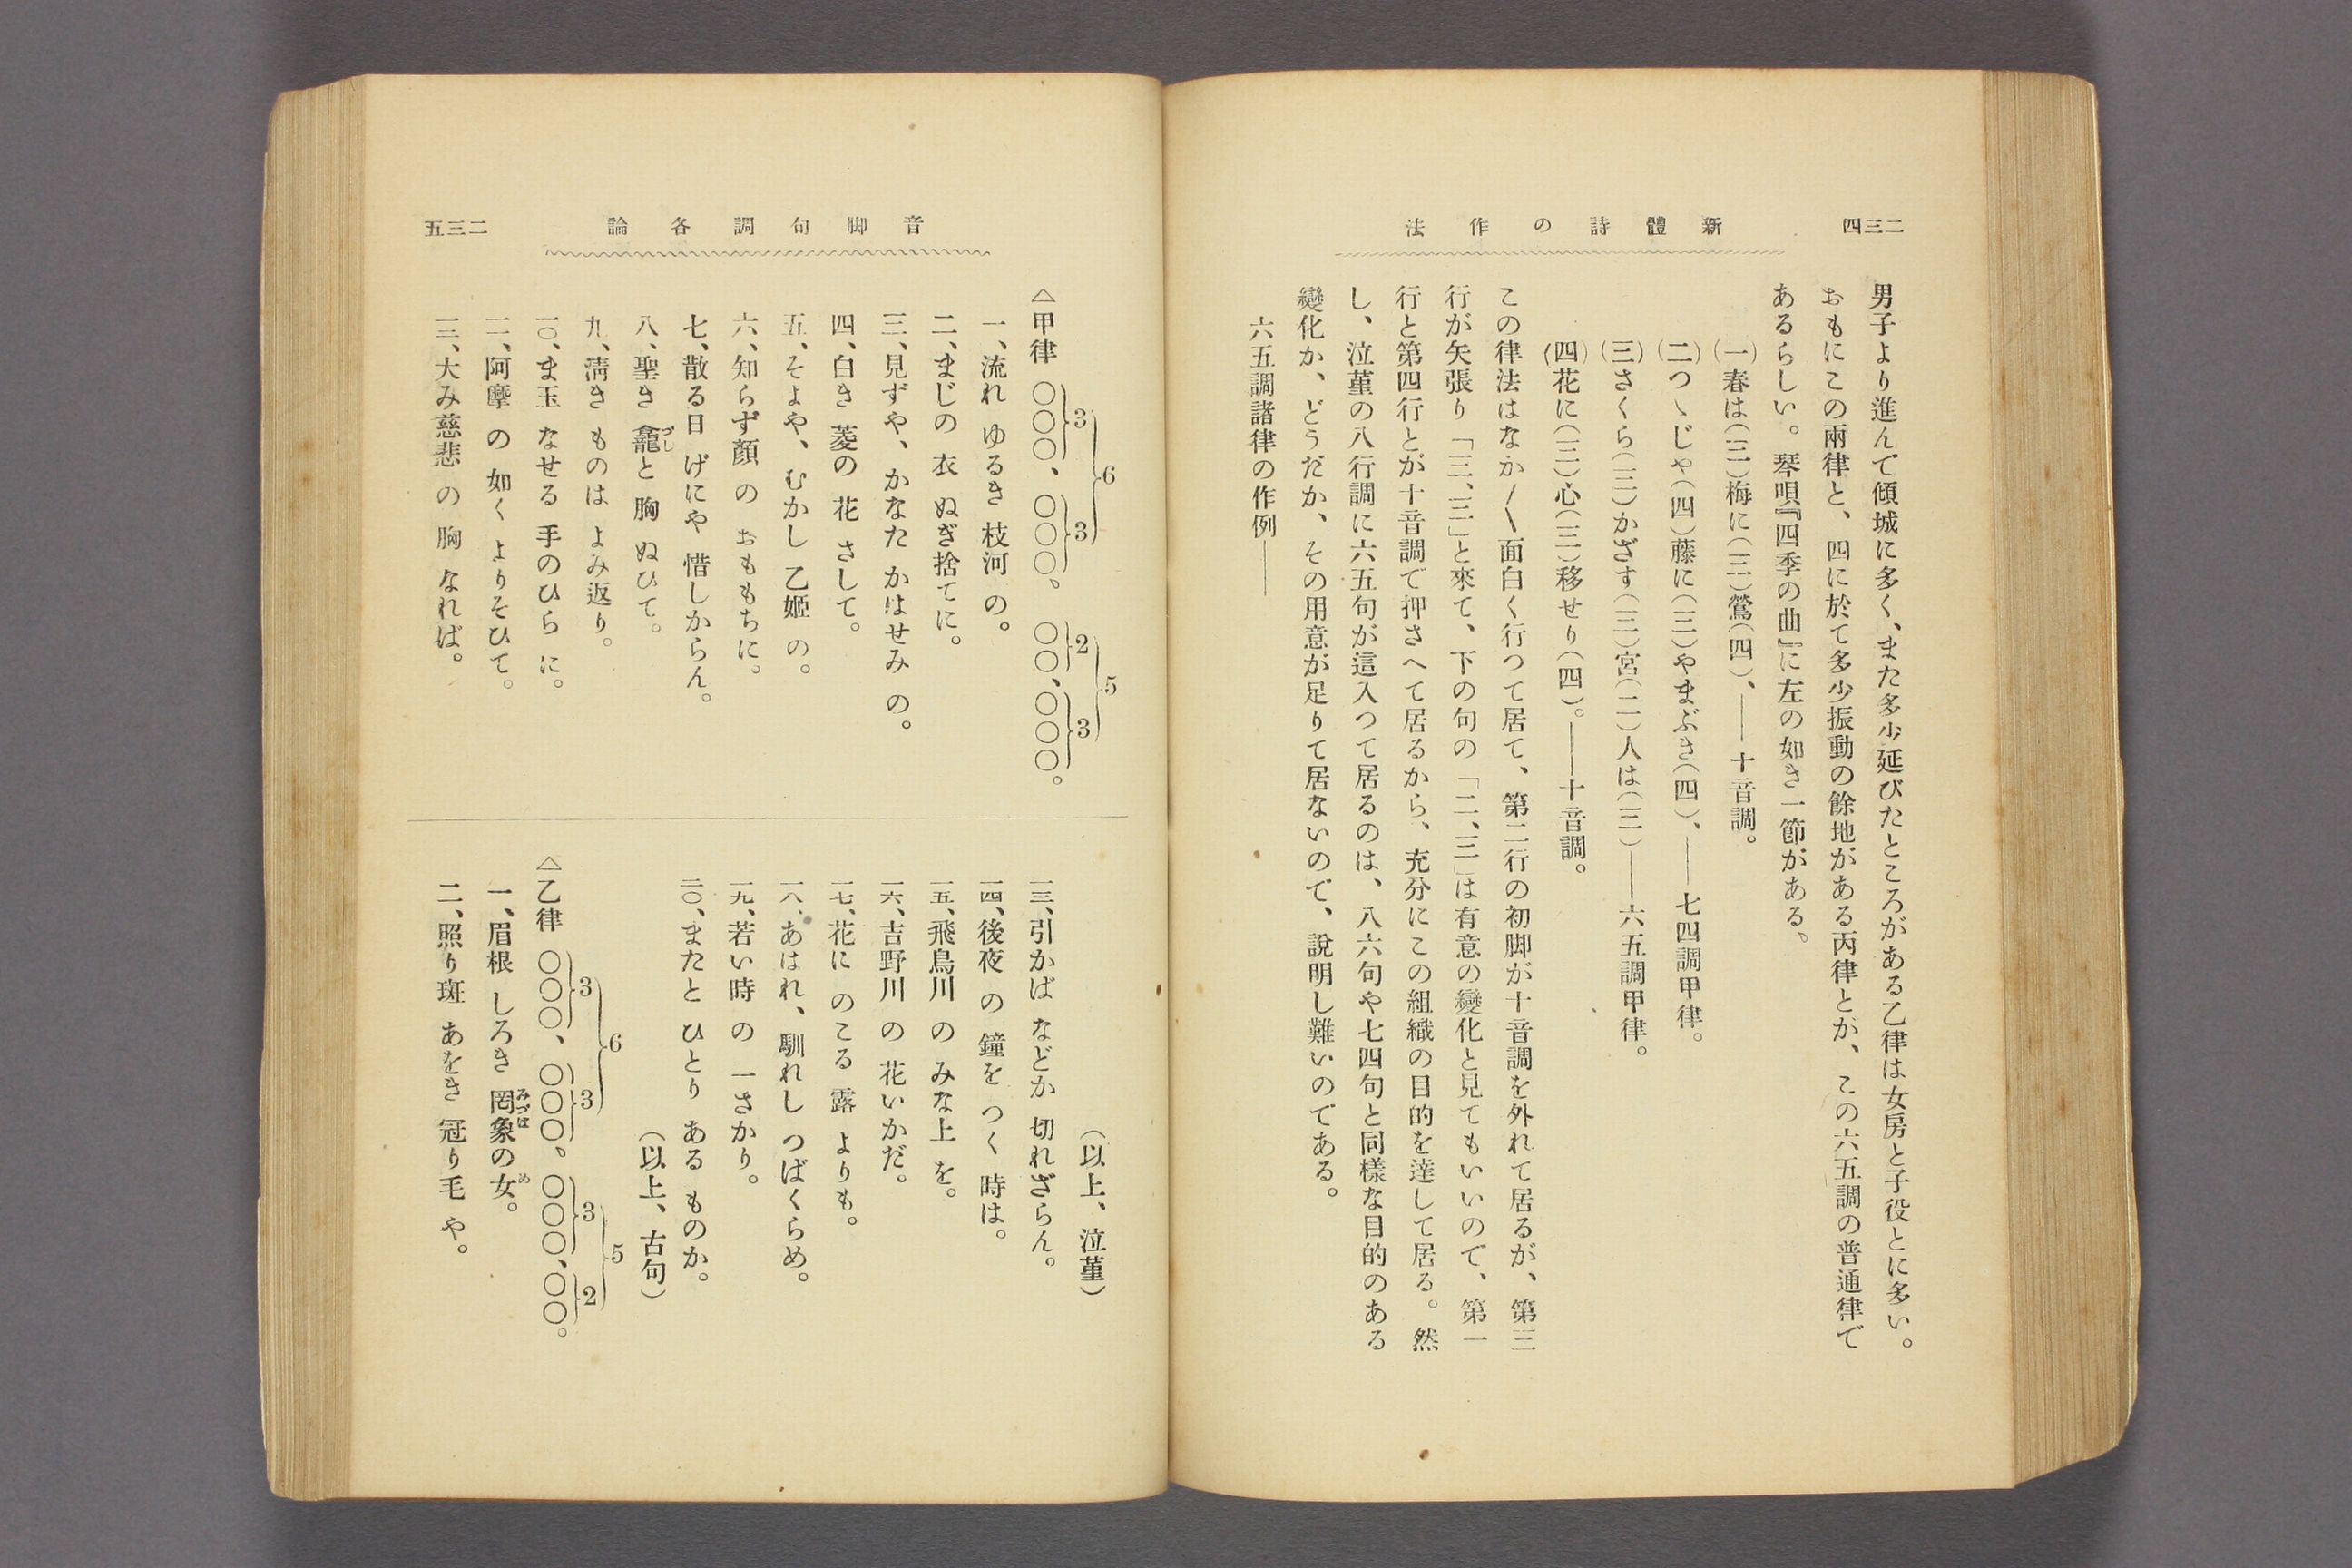 二三四
新體詩の作法
男子より進んで傾城に多く、また多少延びたところがある乙律は女房と子役とに多い。
おもにこの兩律と、四に於て多少振動の餘地がある丙律とが、この六五調の普通律で
あるらしい。琴唄『四季の曲』に左の如き一節がある。
(一)春は(三)梅に(三)鶯(四)、――十音調。
(二)つゝじや(四)藤に(三)やまぶき(四)、――七四調甲律。
(三)さくら(三)かざす(三)宮(二)人は(三)――六五調甲律。
(四)花に(三)心(三)移せり(四)。――十音調。
この律法はなか〳〵面白く行つて居て、第二行の初脚が十音調を外れて居るが、第三
行が矢張り「三、三」と來て、下の句の「二、三」は有意の變化と見てもいいので、第一
行と第四行とが十音調で押さへて居るから、充分にこの組織の目的を達して居る。然
し、泣菫の八行調に六五句が這入つて居るのは、八六句や七四句と同樣な目的のある
變化か、どうだか、その用意が足りて居ないので、說明し難いのである。
六五調諸律の作例――
二三五
音脚句調各論
△甲律 〇〇〇、〇〇〇。〇〇、〇〇〇。
3 3 6 2 3 5
一、流れ ゆるき 枝河 の。
二、まじの 衣 ぬぎ捨てに。
三、見ずや、かなた かはせみ の。
四、白き 菱の 花 さして。
五、そよや、むかし 乙姬 の。
六、知らず顏 の おももちに。
七、散る日 げにや 惜しからん。
八、聖き 龕と 胸 ぬひて。
づし
九、淸き ものは よみ返り。
一〇、ま玉 なせる 手のひら に。
一一、阿摩 の 如く よりそひて。
一二、大み慈悲 の 胸 なれば。
(以上、泣菫)
一三、引かば などか 切れざらん。
一四、後夜 の 鐘を つく 時は。
一五、飛鳥川 の みな上 を。
一六、吉野川 の 花いかだ。
一七、花に のこる 露 よりも。
一八、あはれ、馴れし つばくらめ。
一九、若い時 の 一さかり。
二〇、またと ひとり ある ものか。
(以上、古句)
△乙律 〇〇〇、〇〇〇。〇〇〇、〇〇。
3 3 6 3 2 5
一、眉根 しろき 罔象の女。
みづは め
二、照り斑 あをき 冠り毛 や。